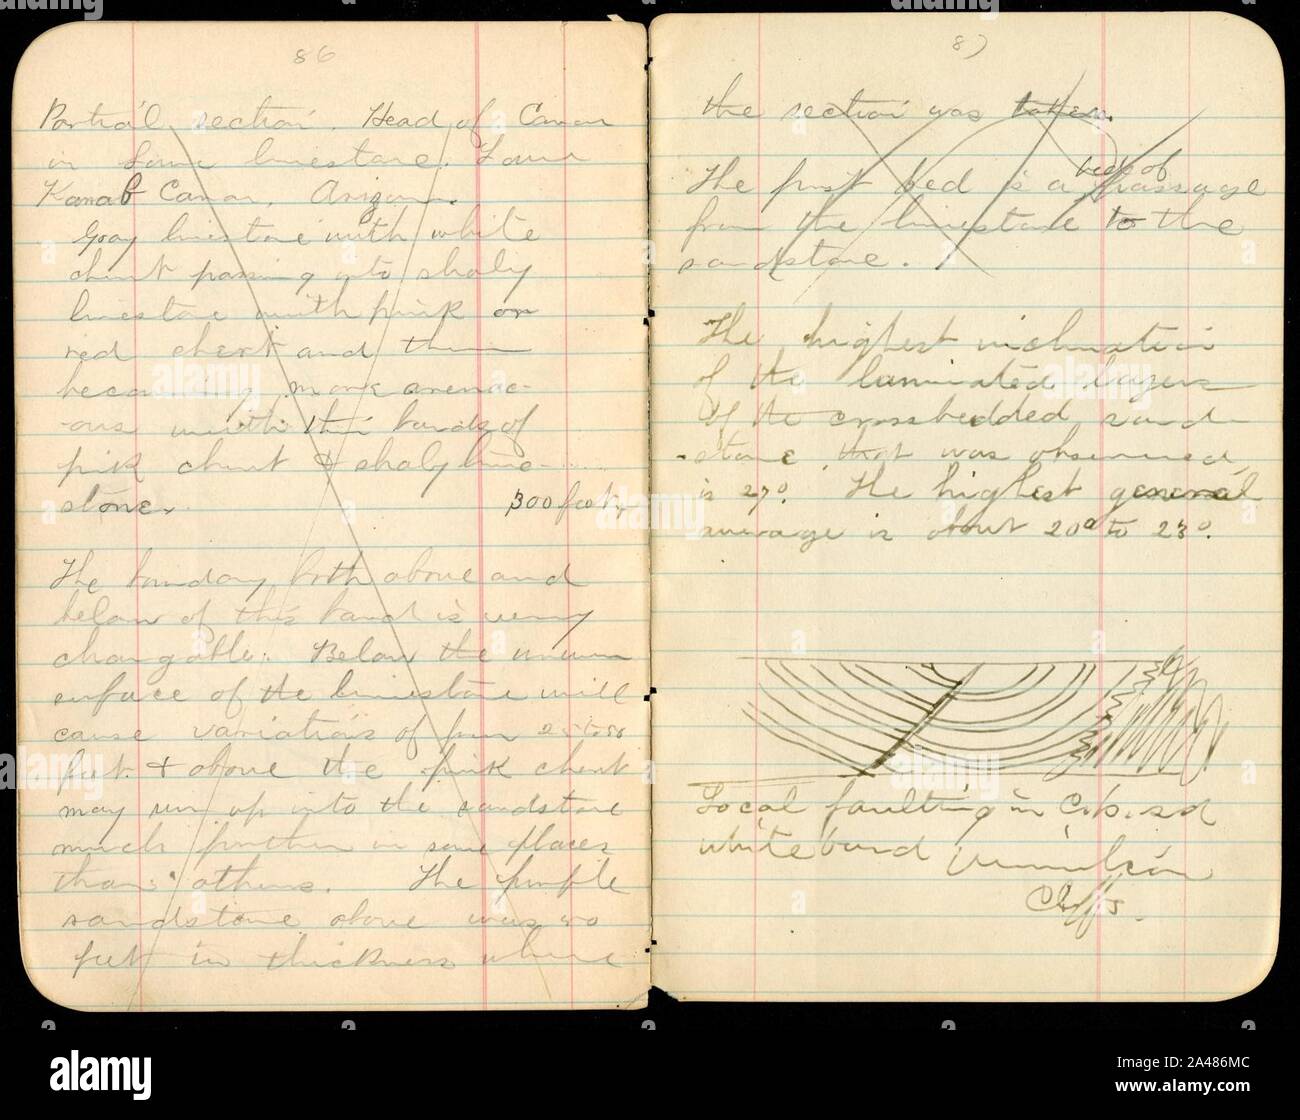 86
Partial section. Head of Canon
in Lower limestone. Lower
Kanab Canon, Arizona.
Gray limestone with white
chert passing into shaly
limestone with pink or
red chert and then
becoming more arenac-
-ous with thin bands of
pink chert & shaly lime-
stone. 300 feet
The boundary both above and
below of this band is very
changable. Below the uneven
surface of the limestone will
cause variations of from 25 to 50
feet & above the pink chert
may run up into the sandstone
much further in some places
than others. The purple
sandstone above was 20
feet in thickness where
87
the section was taken.
The first bed is a bed of passage
from the limestone to the
sandstone.
The highest inclination
of the laminated layers
of the crossbedded sand-
-stone that was observed
is 27°. The highest general
average is about 20° to 23°.
Local faulting in C.b. sd
white band Vermilion
Cliffs.
alamy
Image ID: 2A486MC
www.alamy.com